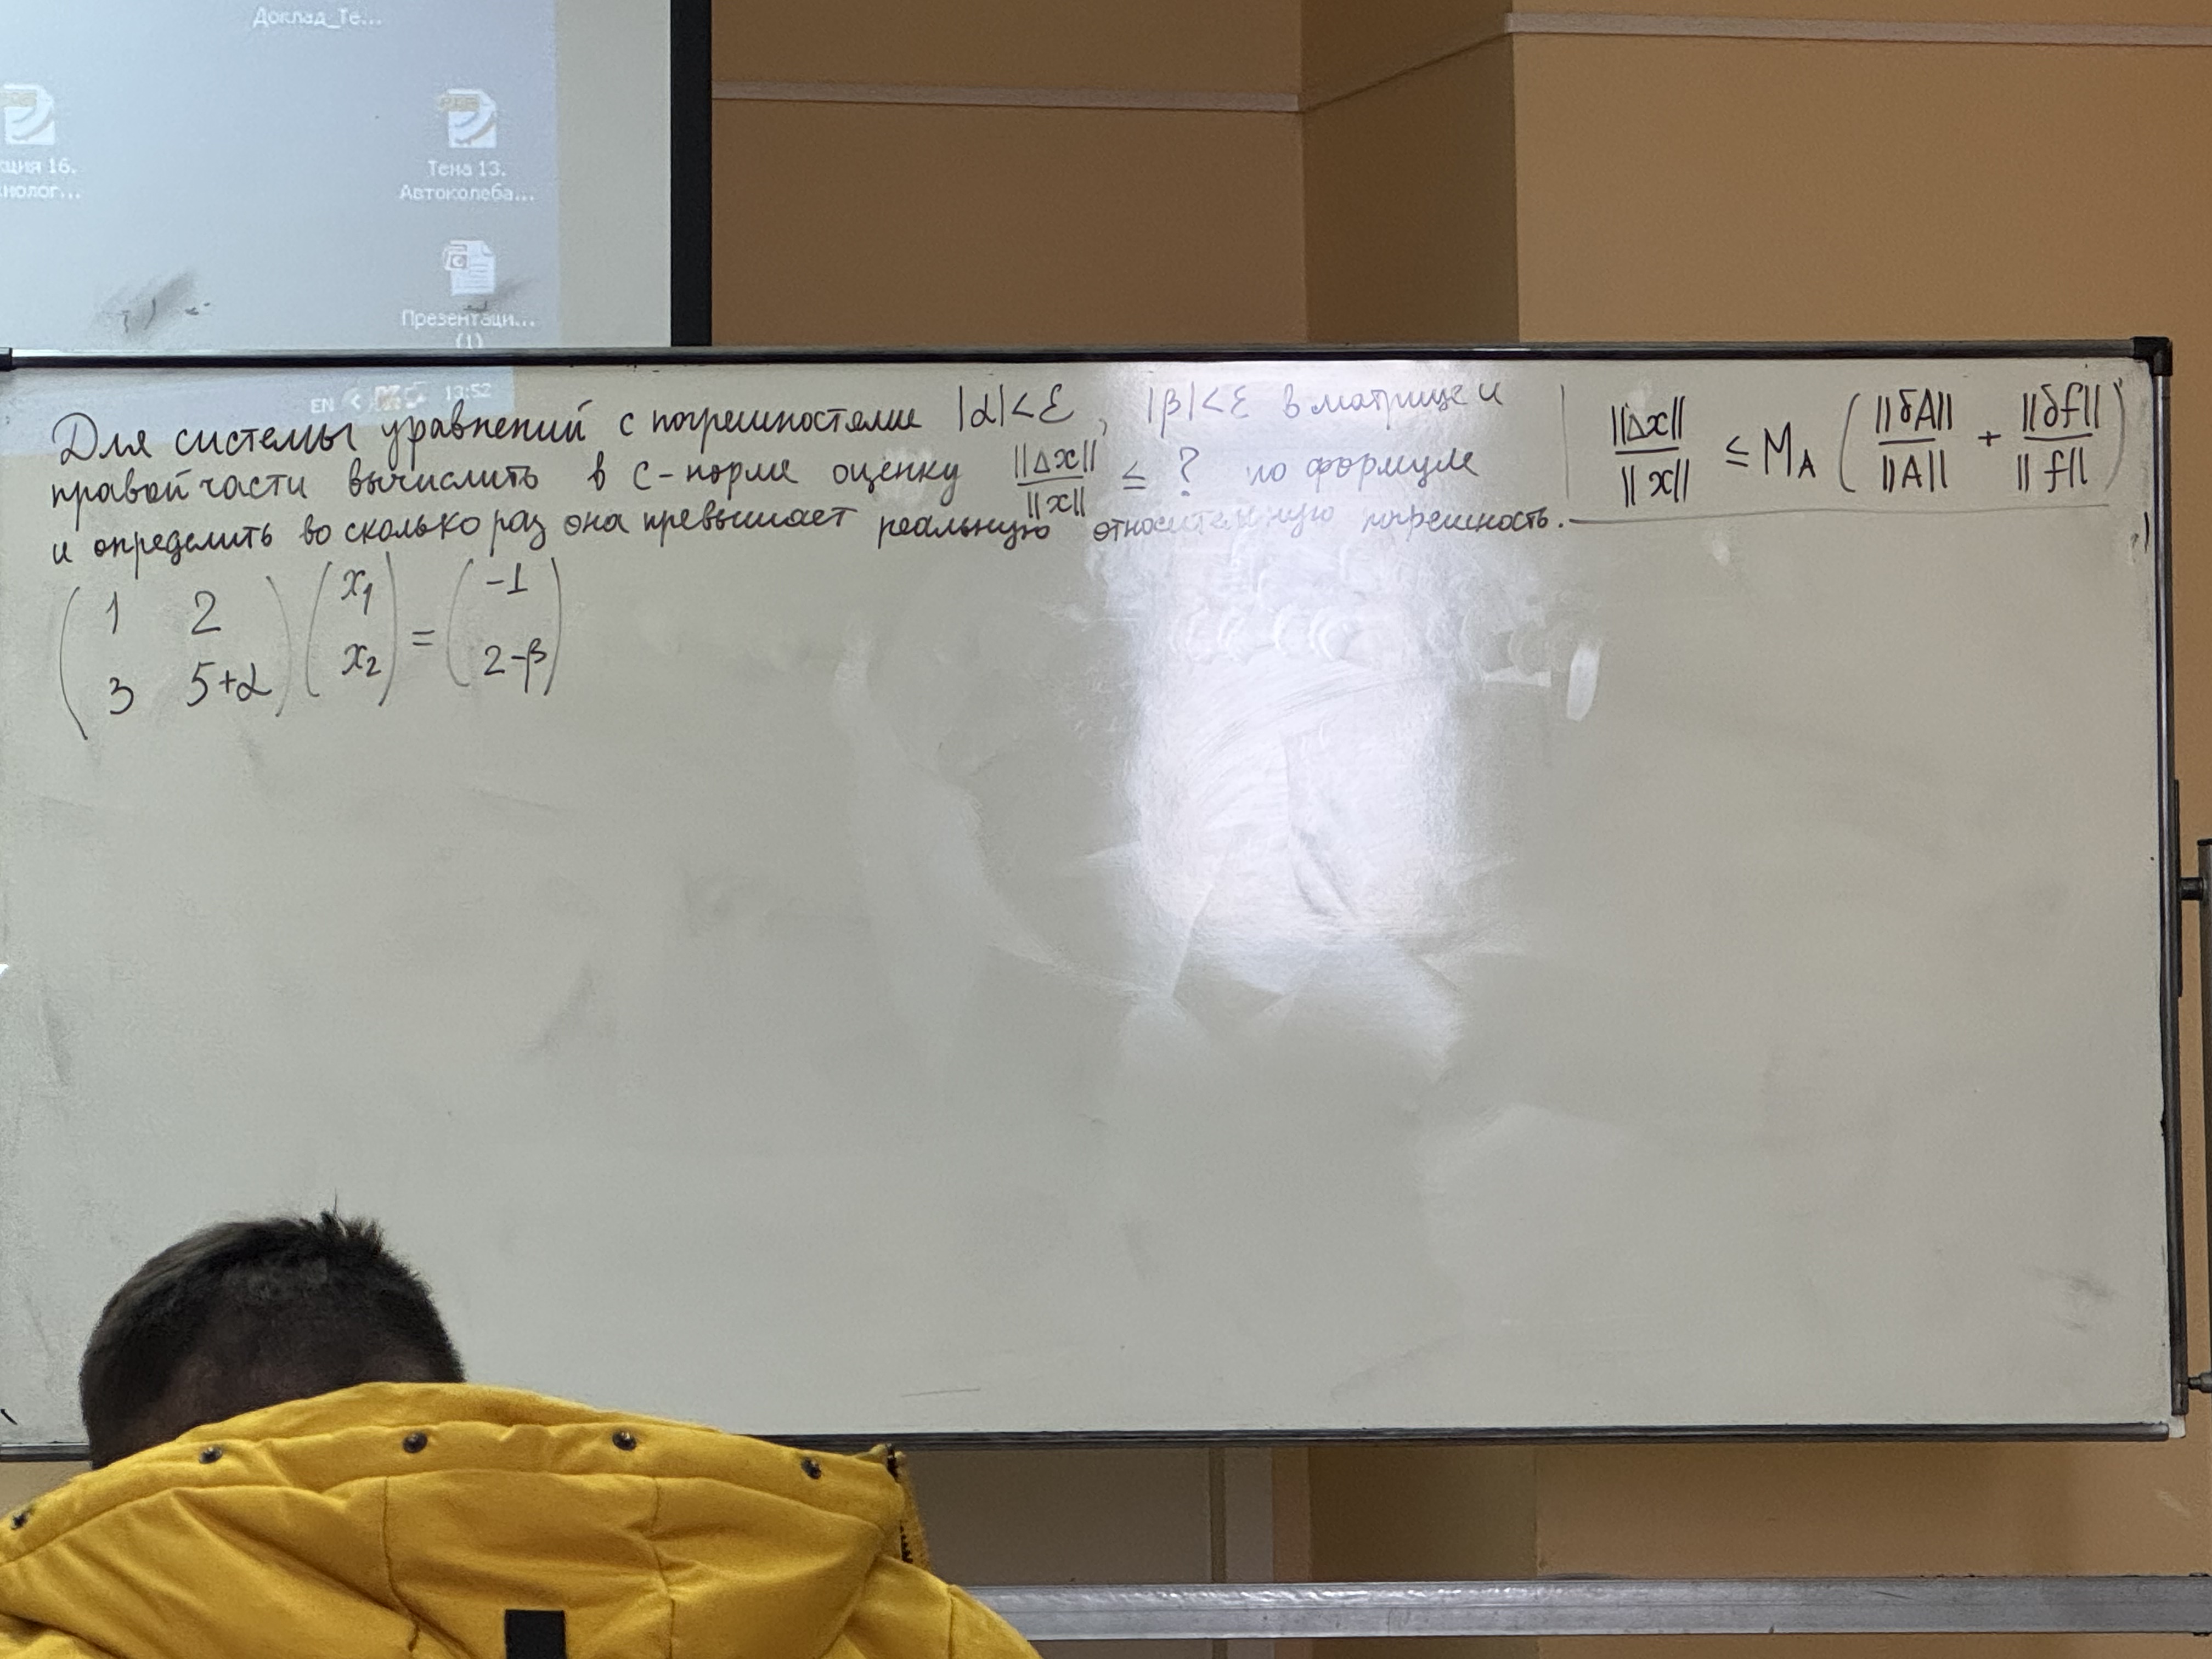 Доклад_Те...
кция 16.
нолог...
Тема 13.
Автоколеба...
Презентаци...
(1)
EN < 13:52
Для системы уравнений с погрешностями |α|<ε, |β|<ε в матрице и
правой части вычислить в C-норме оценку ||Δx||/||x|| ≤ ? по формуле
и определить во сколько раз она превышает реальную относительную погрешность.
||Δx||/||x|| ≤ M_A (||δA||/||A|| + ||δf||/||f||)
(1 2) (x₁) = (-1)
(3 5+α) (x₂) (2-β)